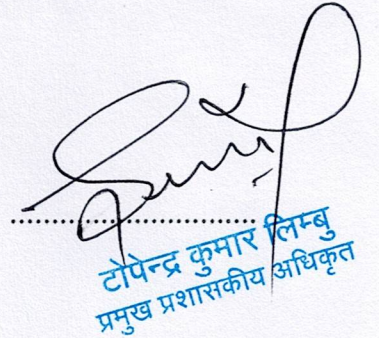 टोपेन्द्र कुमार लिम्बु
प्रमुख प्रशासकीय अधिकृत